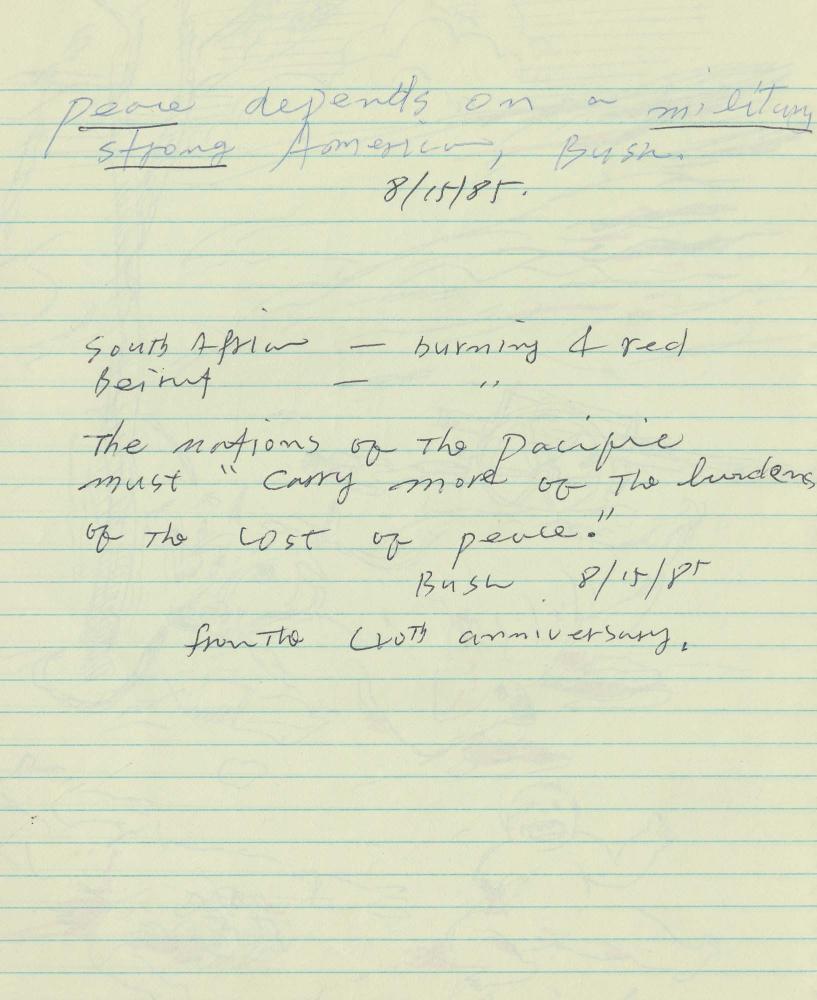 peace depends on a military
strong America, Bush.
8/15/85.
South Africa — burning & red
Beirut — "
The nations of the Pacific
must "carry more of the burdens
of the cost of peace."
Bush 8/15/85
from the 40th anniversary.